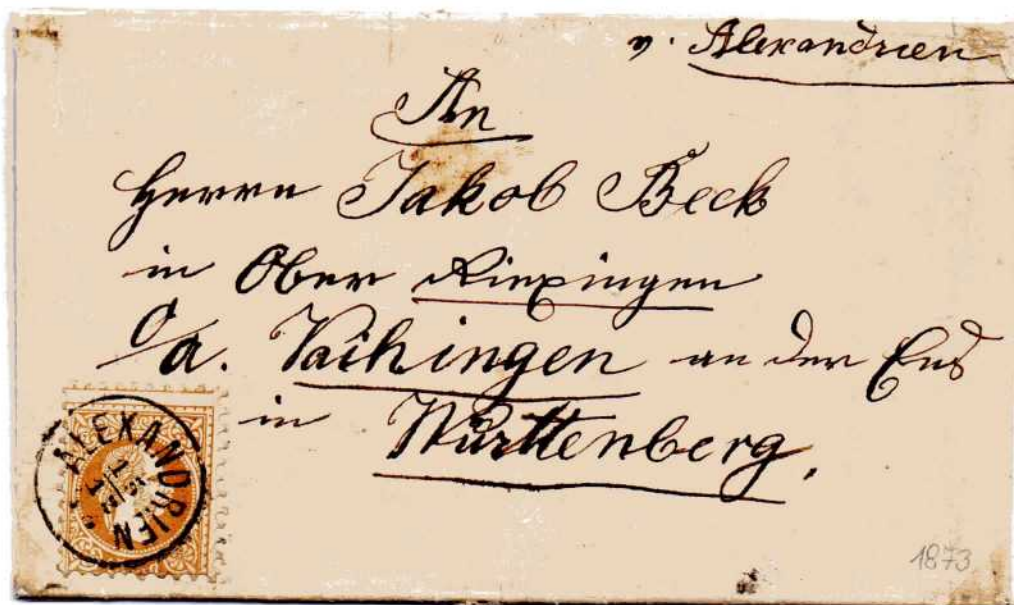 v. Alexandrien
An
Herrn Jakob Beck
in Ober Riexingen
O/a. Vaihingen an der Enz
in Württenberg.
ALEXANDRIEN
1873